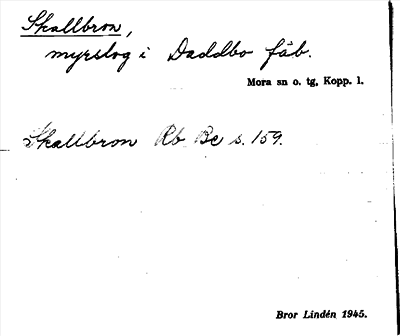 Skallbron,
myrslog i Daddbo fäb.
Mora sn o. tg, Kopp. l.
Skallbron Rb Be s. 159.
Bror Lindén 1945.